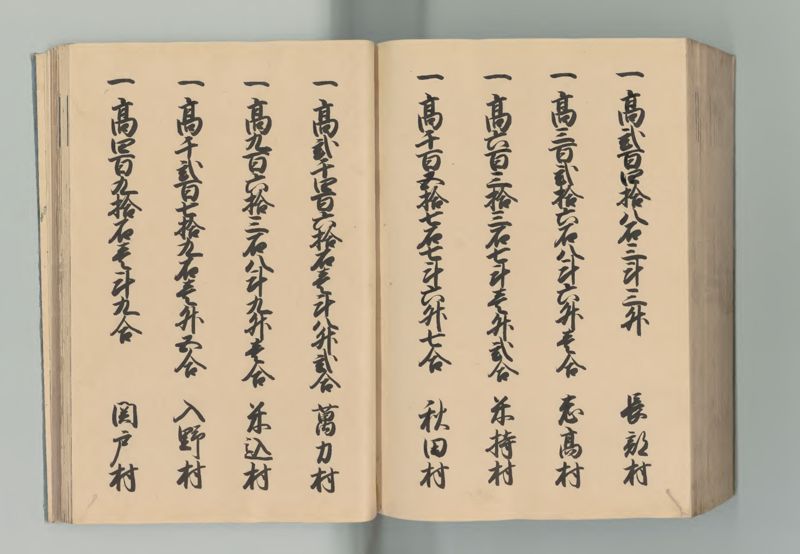 一 高弐百四拾八石三斗三升 長部村
一 高三百弐拾六石八斗六升壱合 志高村
一 高六百三拾三石七斗壱升弐合 米持村
一 高千百五拾七石七斗六升七合 秋田村
一 高弐千四百六拾石壱斗八升弐合 萬力村
一 高九百六拾三石八斗九升壱合 米込村
一 高千弐百七拾九石壱升五合 入野村
一 高四百九拾石壱斗九合 関戸村